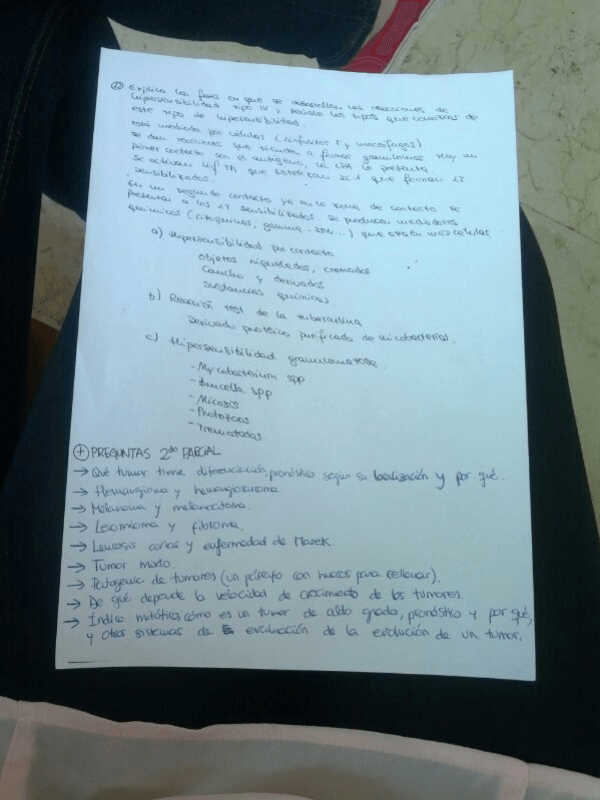 Explica las fases en que se desarrollan las reacciones de
hipersensibilidad tipo IV y señala los tipos que conozcas de
este tipo de hipersensibilidad.
está mediada por células (linfocitos T y macrófagos)
se dan reacciones que tienden a formar granulomas. Hay un
primer contacto con el antígeno, la CPA lo presenta
se activan linf Th que sintetizan IL-1 que forman LT
sensibilizados.
En un segundo contacto ya en la zona de contacto se
presentan a los LT sensibilizados. Se producen mediadores
químicos (citoquinas, gamma-IFN...) que atraen más células.
a) Hipersensibilidad por contacto
Objetos niquelados, cromados
Caucho y derivados
Sustancias químicas.
b) Reacción test de la tuberculina
Derivado proteico purificado de micobacterias.
c) Hipersensibilidad granulomatosa.
- Mycobacterium spp
- Brucella spp
- Micosis
- Protozoos
- Trematodos
+ PREGUNTAS 2do PARCIAL
→ Qué tumor tiene diferenciación, pronóstico según su localización y por qué.
→ Hemangioma y hemangiosarcoma.
→ Melanoma y melanocitoma.
→ Leiomioma y fibroma.
→ Leucosis aviar y enfermedad de Marek.
→ Tumor mixto.
→ Patogenia de tumores (un párrafo con huecos para rellenar).
→ De qué depende la velocidad de crecimiento de los tumores.
→ Índice mitótico, cómo es un tumor de alto grado, pronóstico y por qué,
y otros sistemas de evaluación de la evolución de un tumor.